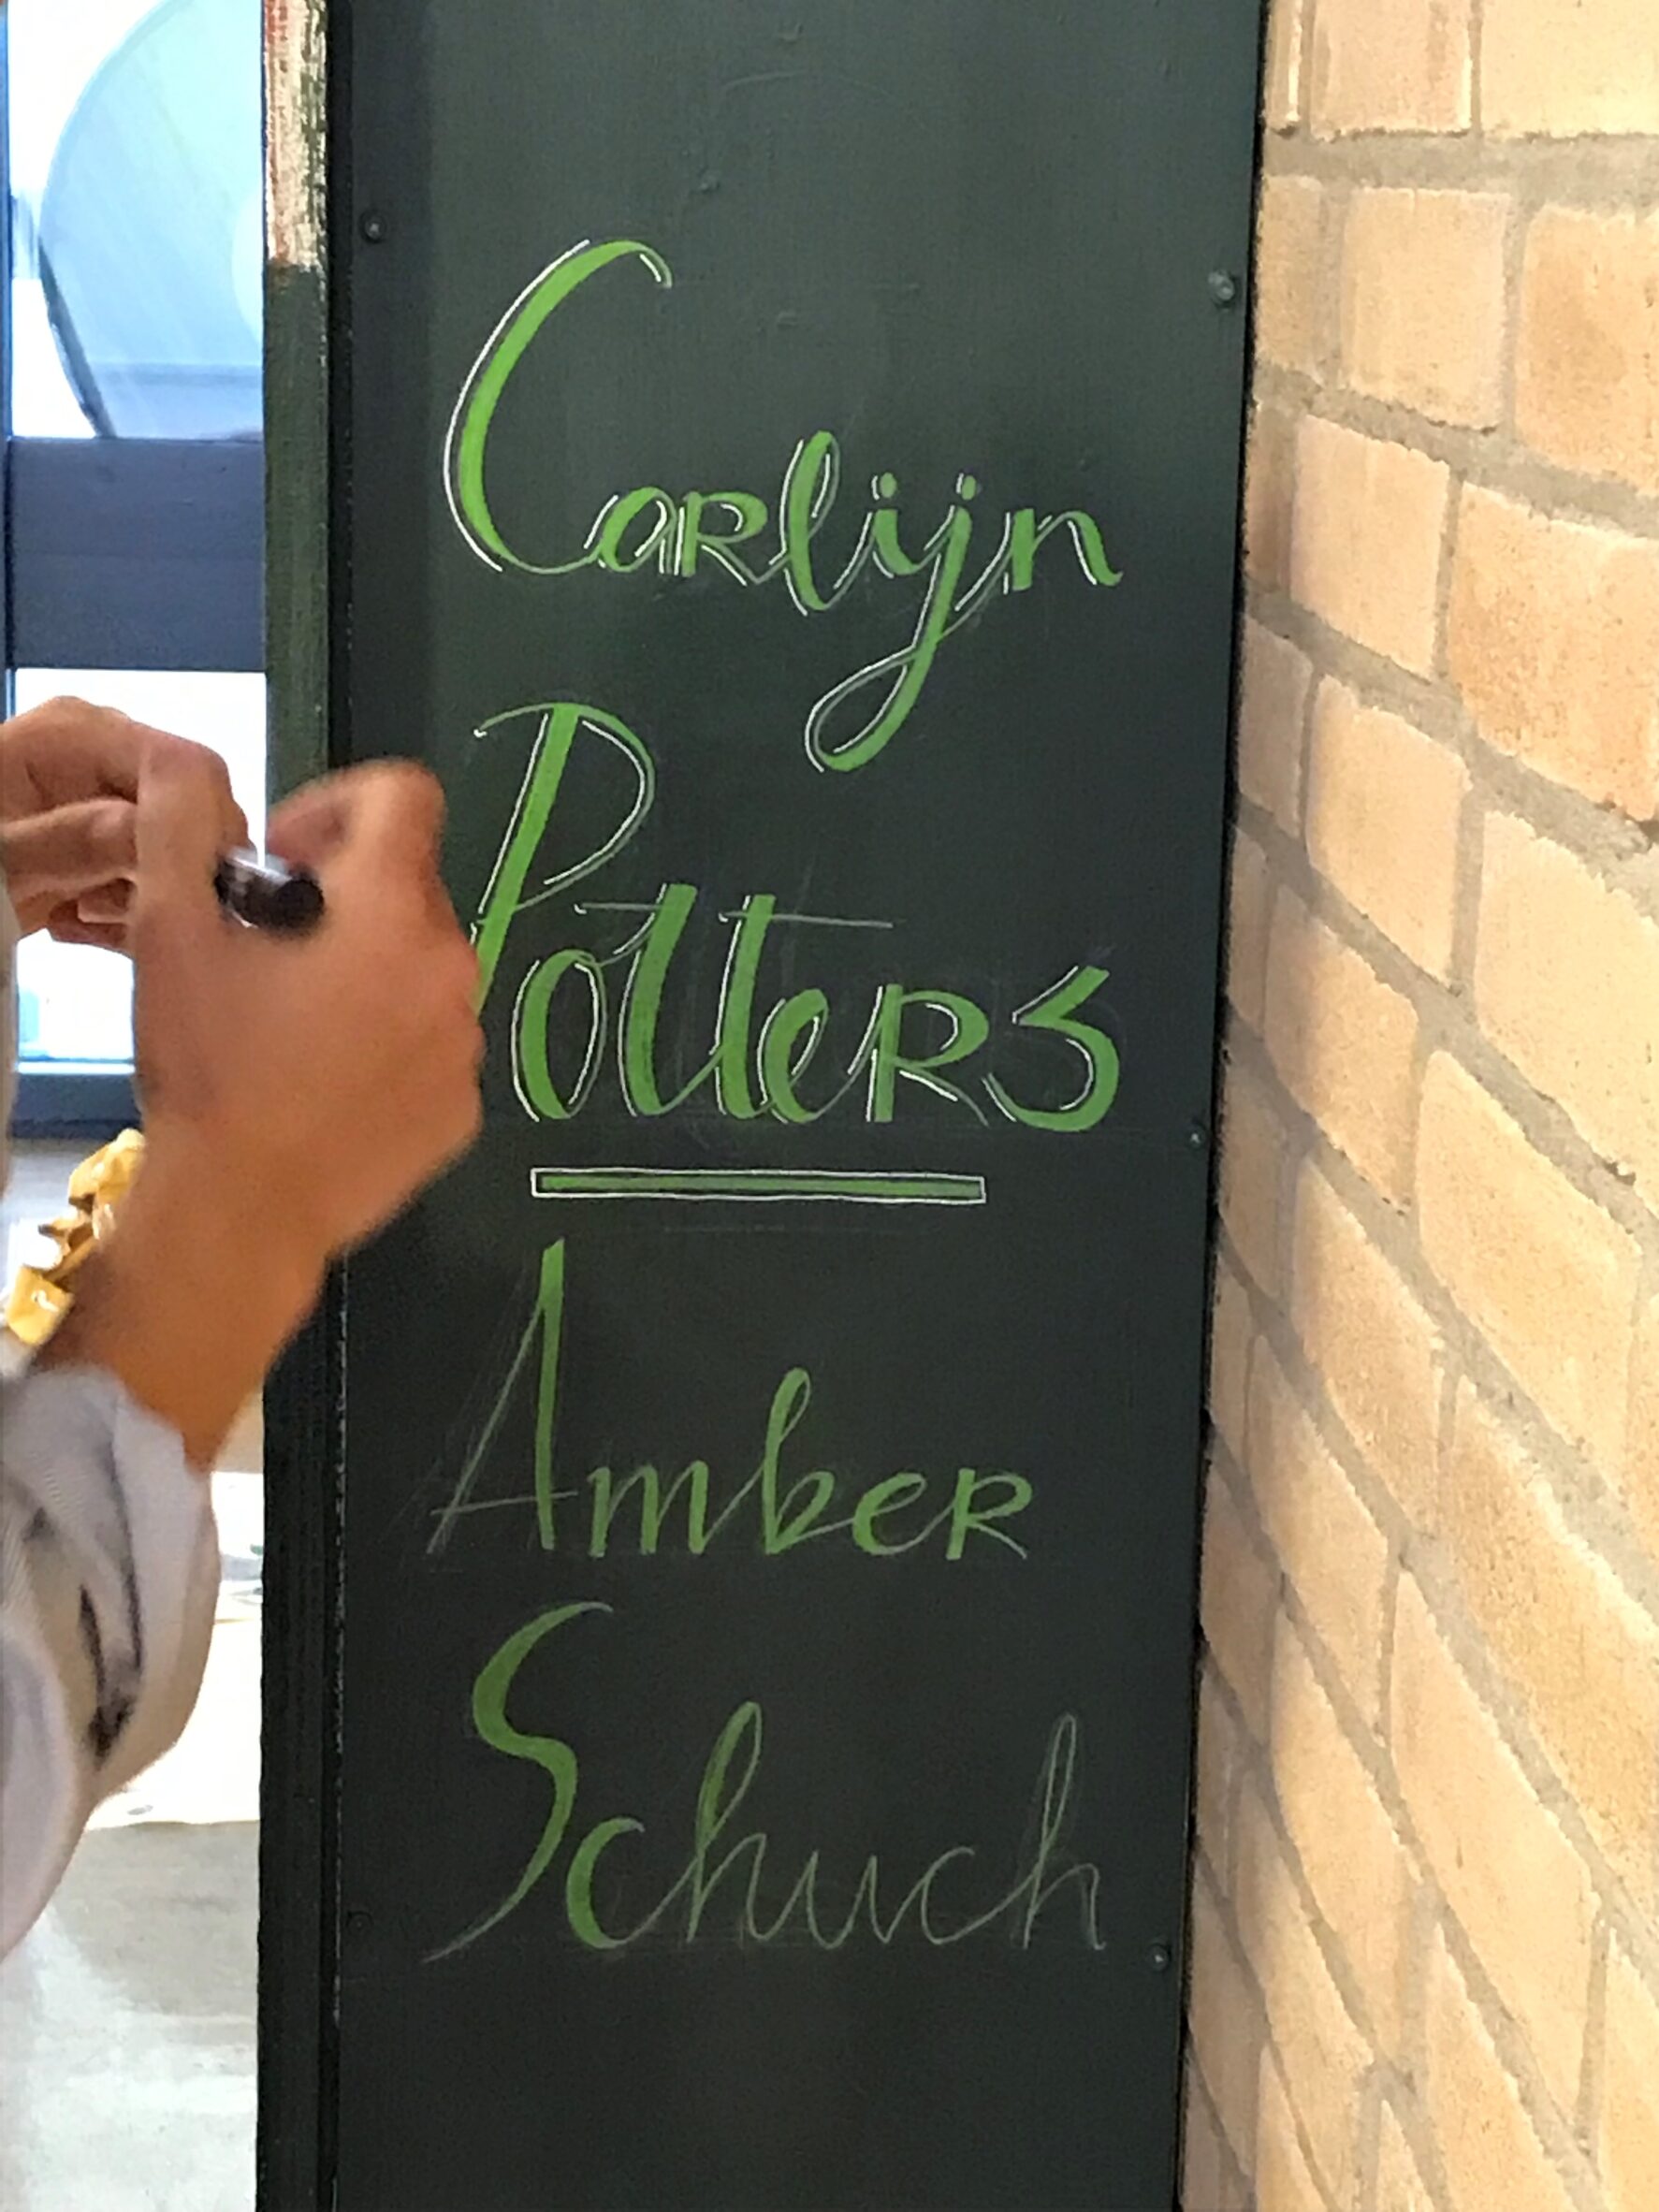 Carlijn
Potters
Amber
Schuch